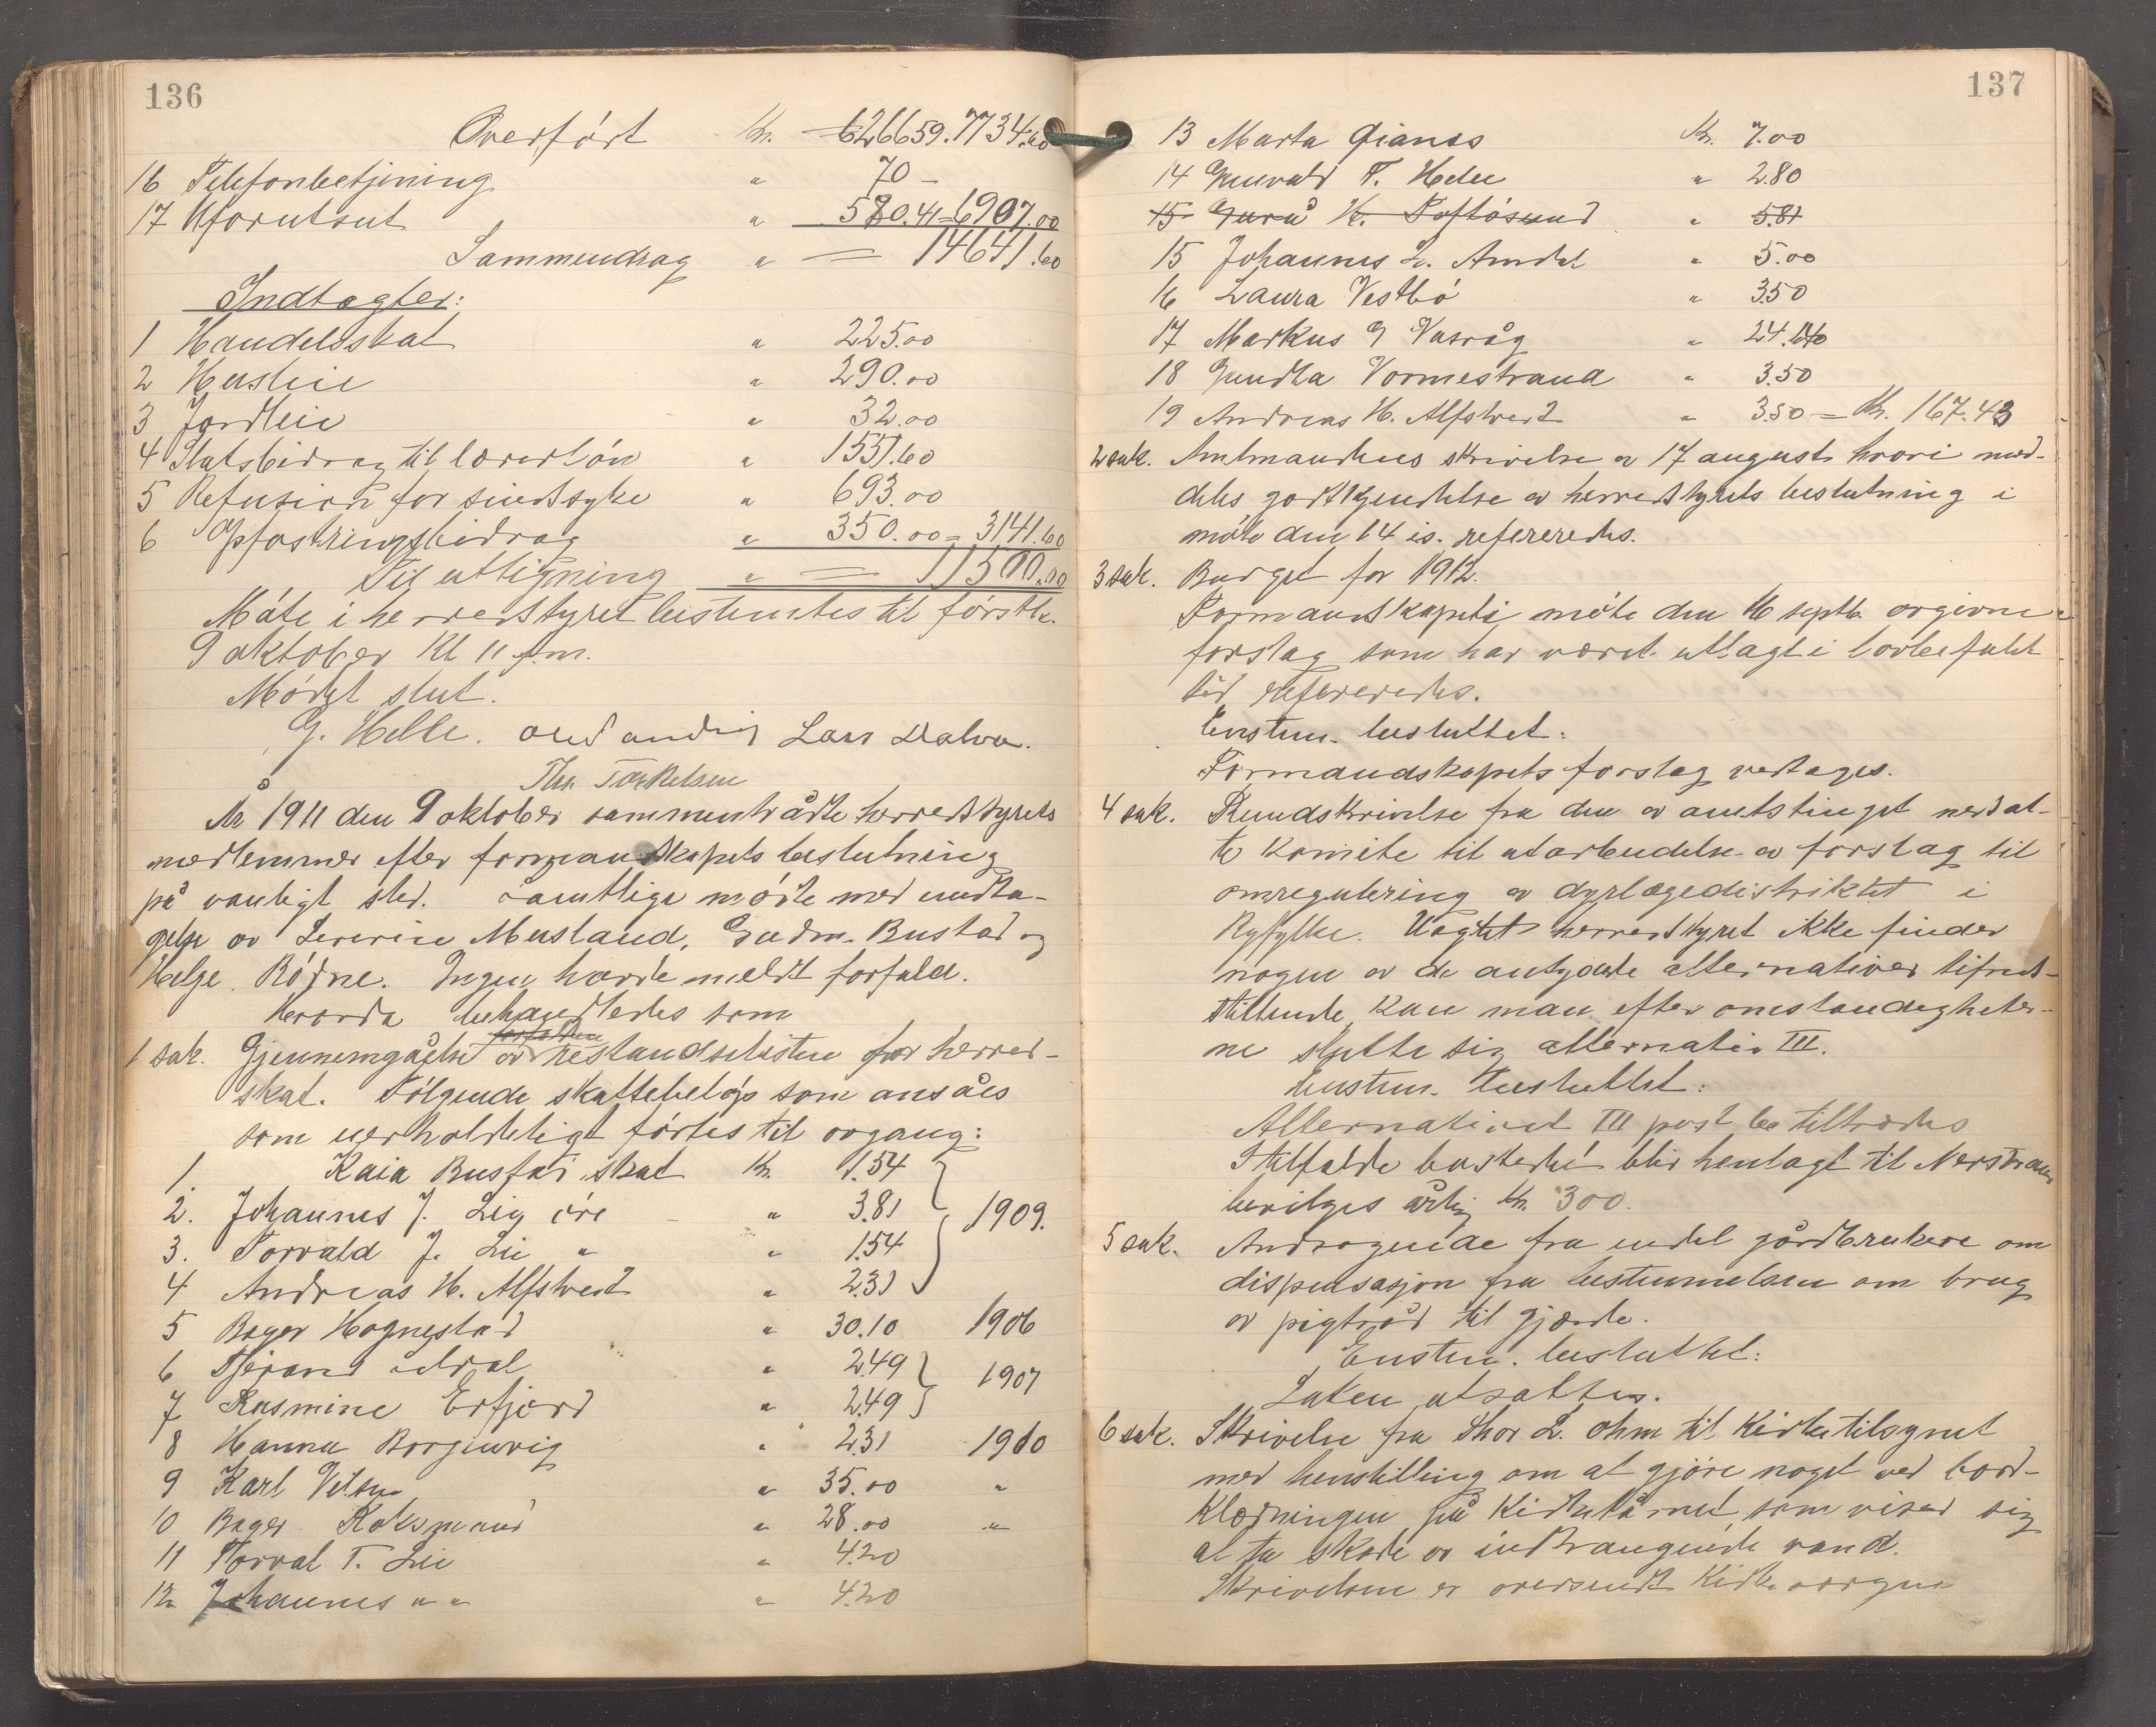 136
Overført Kr. 626659.7734.60
16 Telefonbetjening " 70 –
17 Uforutset " 580.41 = 6907.00
Sammendrag " = 14641.60
Indtægter:
1 Handelsskat " 225.00
2 Husleie " 290.00
3 Jordleie " 32.00
4 Statsbidrag til lærerløn " 1551.60
5 Refusion for sindssyke " 693.00
6 Opfostringsbidrag " 350.00 = 3141.60
Til utligning " = 11500.00
Møte i herredstyret bestemtes til førstk.
9 oktober kl 11 f.m.
Mødet slut.
G. Helle. Lars Dalva.
Ths. Torkelsen
År 1911 den 9 oktober sammentrådte herredstyrets
medlemmer efter formandskapets beslutning
på vanligt sted. Samtlige mødte med undta-
gelse av Severin Musland, Gudm. Bustad og
Helge Rødne. Ingen havde meldt forfald.
Hvorda behandledes som
1 sak. Gjennemgåelse av restandselisten for herred-
skat. Følgende skattebeløp som ansåes
som uerholdeligt førtes til avgang:
1. Kaia Bustad skat Kr. 1.54
2. Johannes J. Lie øre " 3.81 1909.
3. Torvald J. Lie " " 1.54
4 Andreas H. Alfstveit " 2.31
5 Bager Hognestad " 30.10 1906
6 Tjerand " 2.49
7 Rasmine Erfjord " 2.49 1907
8 Hanna Borgenvig " 2.31 1910
9 Karl " 35.00 "
10 Bager " 28.00 "
11 Torval T. Lie " 4.20
12 Johannes " " " 4.20
137
13 Marta Kr. 7.00
14 Gunvald T. Helle " 2.80
15 Guru K. Toftøsund " 5.81
15 Johannes L. Amdal " 5.00
16 Laura Vestbø " 3.50
17 Markus G Vasvåg " 24.140
18 Gundla Vormestrand " 3.50
19 Andreas H. Alfstveit " 3.50 = Kr. 167.43
2 sak. Amtmandens skrivelse av 17 august hvori med-
deles godkjendelse av herredstyrets beslutning i
møte den 14 is. refereredes.
3 sak. Budget for 1912.
Formandskapets i møte den 16 septb. avgivne
forslag som har været utlagt i lovbefalet
tid refereredes.
Enstem. besluttet:
Formandskapets forslag vedtages.
4 sak. Rundskrivelse fra den av amtstinget nedsat-
te komite til utarbeidelse av forslag til
omregulering av dyrlægedistriktet i
Ryfylke. Uagtet herredstyret ikke finder
nogen av de antydede alternativer tilfreds-
stillende kan man efter omstændigheter-
ne slutte sig alternativ III.
Enstem. besluttet:
Alternativet III post tiltrædes
I tilfælde bostedet blir henlagt til Nerstrand
bevilges årlig Kr. 300.
5 sak. Andragende fra endel gårdbrukere om
dispensasjon fra bestemmelsen om brug
av pigtråd til gjærde.
Enstem. besluttet:
Saken utsattes.
6 sak. Skrivelse fra Thor L. Ohm til Kirketilsynet
med henstilling om at gjøre noget ved bord-
klædningen på Kirketårnet, som viser sig
at ta skade av indtrængende vand.
Skrivelsen er oversendt Kirkeværgen